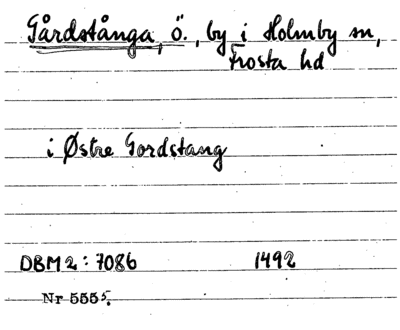 Gårdstånga, Ö., by i Holmby sn,
Frosta hd
i Østre Gordstang
DBM 2: 7086 1492
Nr 5555.